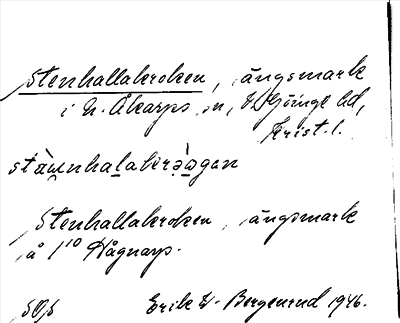 Stenhallakroken, ängsmark
i N. Åkarps sn, V. Göinge hd,
Krist. l.
Stenhallakroken, ängsmark
å 1/10 Hågnarp.
Erik W. Bergenrud 1946.